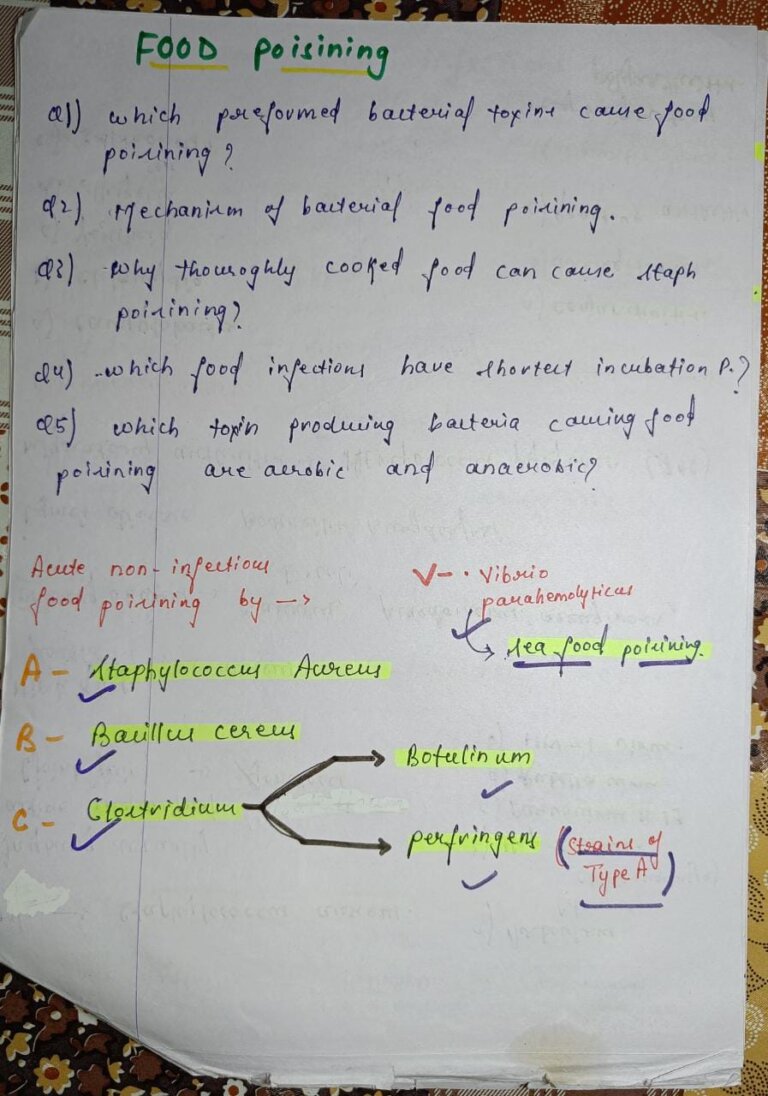 FOOD poisining
Q1) which preformed bacterial toxins cause food
poisining?
Q2) Mechanism of bacterial food poisining.
Q3) why thouroghly cooked food can cause staph
poisining?
Q4) which food infections have shortest incubation P.?
Q5) which toxin producing bacteria causing food
poisining are aerobic and anaerobic?
Acute non-infectious
food poisining by →
A - Staphylococcus Aureus
B - Bacillus cereus
C - Clostridium
Botulinum
perfringens (strains of
Type A)
V - • Vibrio
parahemolyticus
sea food poisining.